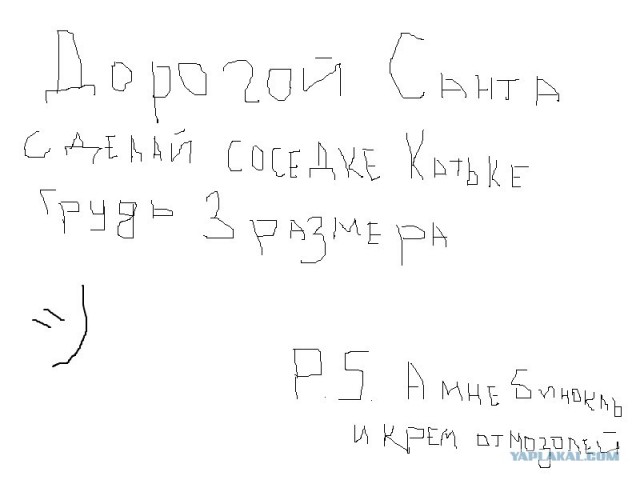 Дорогой Санта
сделай соседке Катьке
грудь 3 размера
=)
P.S. А мне бинокль
и крем от мозолей
YAPLAKAL.COM